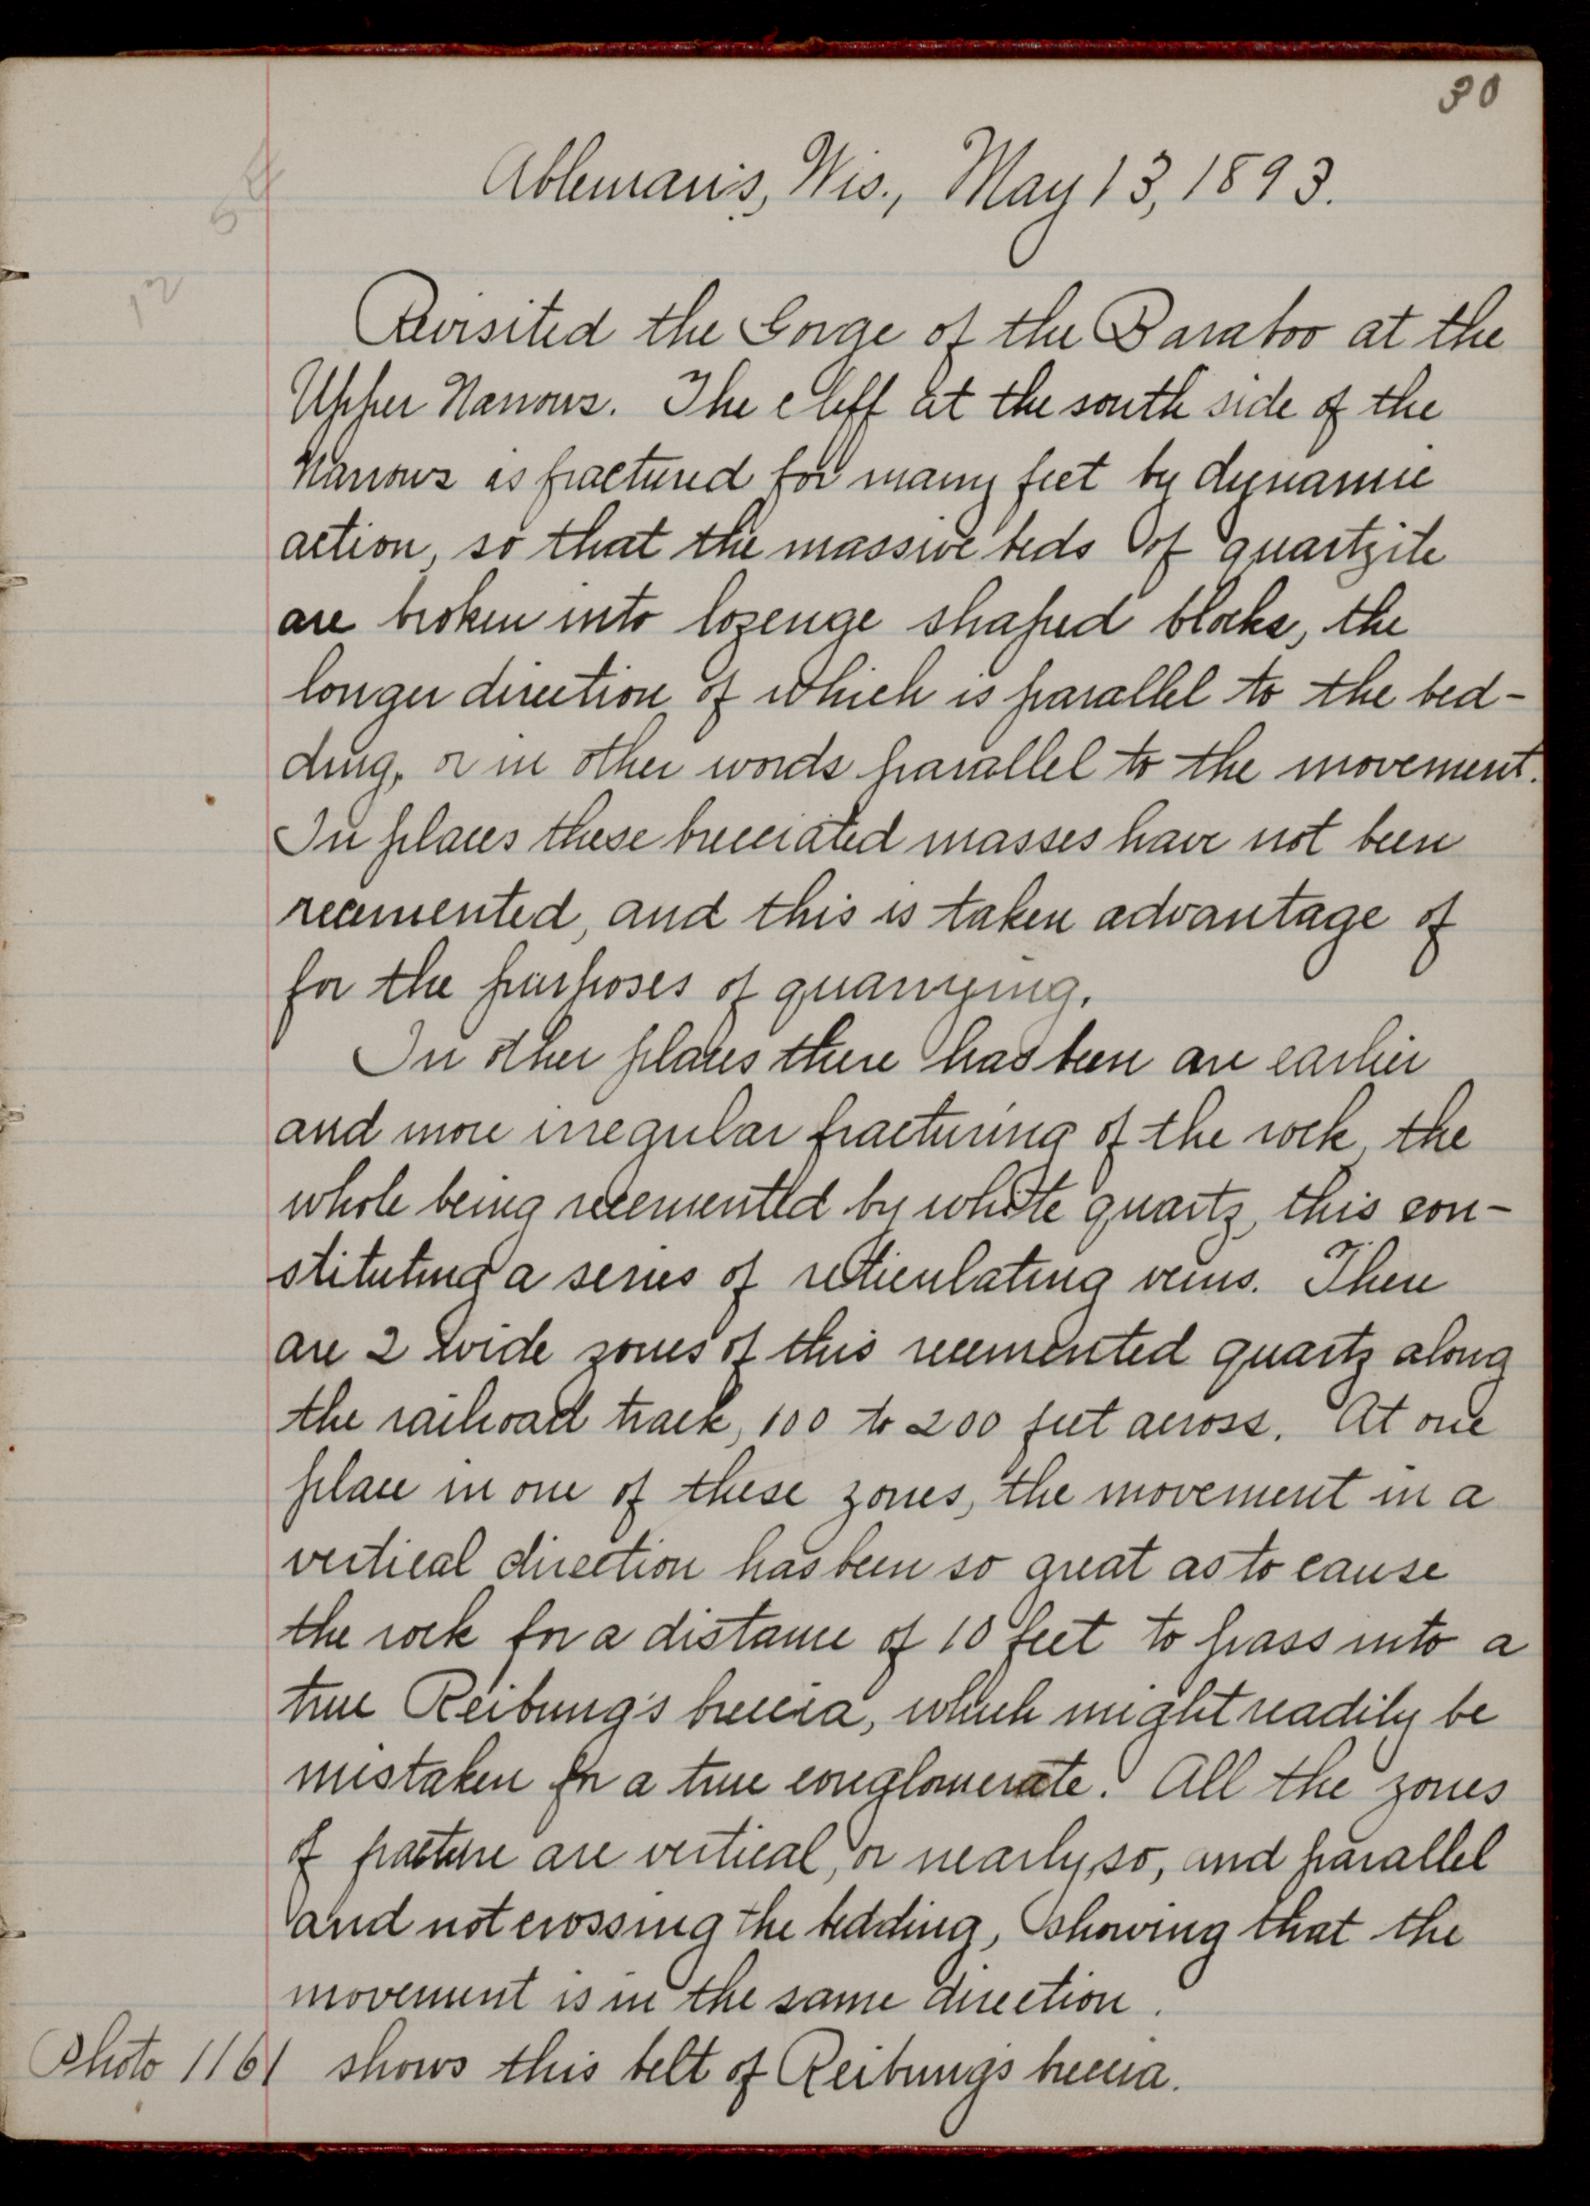 30
Ableman's, Wis., May 13, 1893.
Revisited the Gorge of the Baraboo at the
Upper Narrows. The cliff at the south side of the
Narrows is fractured for many feet by dynamic
action, so that the massive beds of quartzite
are broken into lozenge shaped blocks, the
longer direction of which is parallel to the bed-
ding, or in other words parallel to the movement.
In places these brecciated masses have not been
recemented, and this is taken advantage of
for the purposes of quarrying.
In other places there has been an earlier
and more irregular fracturing of the rock, the
whole being recemented by white quartz, this con-
stituting a series of reticulating veins. There
are 2 wide zones of this recemented quartz along
the railroad track, 100 to 200 feet across. At one
place in one of these zones, the movement in a
vertical direction has been so great as to cause
the rock for a distance of 10 feet to pass into a
true Reibung's breccia, which might readily be
mistaken for a true conglomerate. All the zones
of fracture are vertical, or nearly so, and parallel
and not crossing the bedding, showing that the
movement is in the same direction.
Photo 1161 shows this belt of Reibungs breccia.